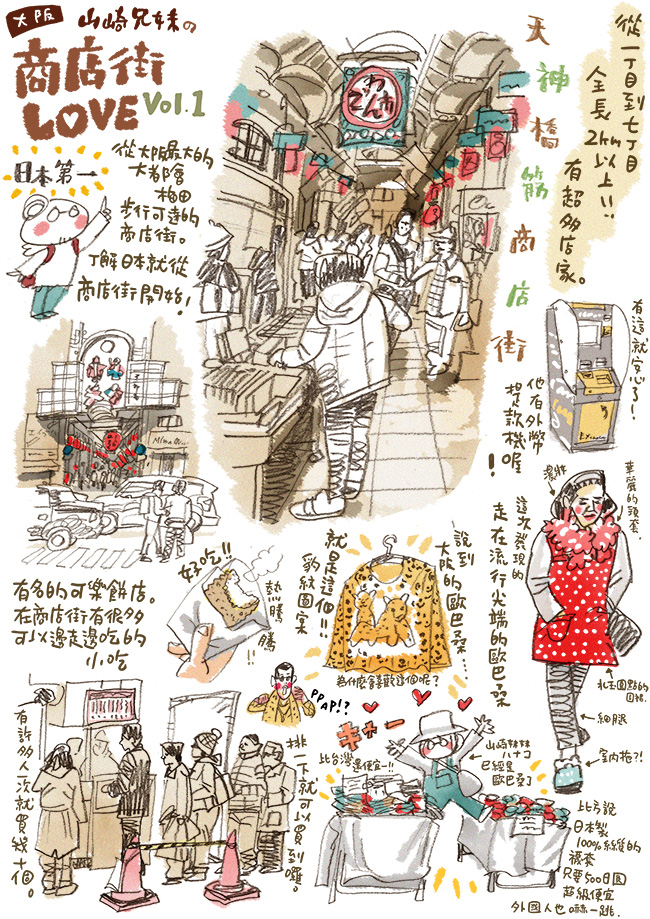 大阪
山崎兄妹の
商店街
LOVE Vol.1
日本第一
從大阪最大的
大都會
梅田
步行可達的
商店街。
了解日本就從
商店街開始!
天神橋筋商店街
從一丁目到七丁目
全長2km以上!!
有超多店家。
有這就安心了!
他有外幣
提款機喔!
有名的可樂餅店。
在商店街有很多
可以邊走邊吃的
小吃
好吃!!
熱騰騰!!
說到
大阪的歐巴桑…
就是這個!!
豹紋圖案
為什麼會喜歡這個呢?
PPAP!?
這次發現的
走在流行光端的歐巴桑
濃妝
華麗的頭套
紅玉圓點的
圍裙
細腿
室內拖?!
有許多人一次就買幾十個。
排一下就可以買到囉。
キャー
比台灣還便宜—!!
山崎妹妹
ハナコ
已經是
歐巴桑了
比方說
日本製
100%絲維的
襪套
只要500日圓
超級便宜
外國人也嚇一跳.